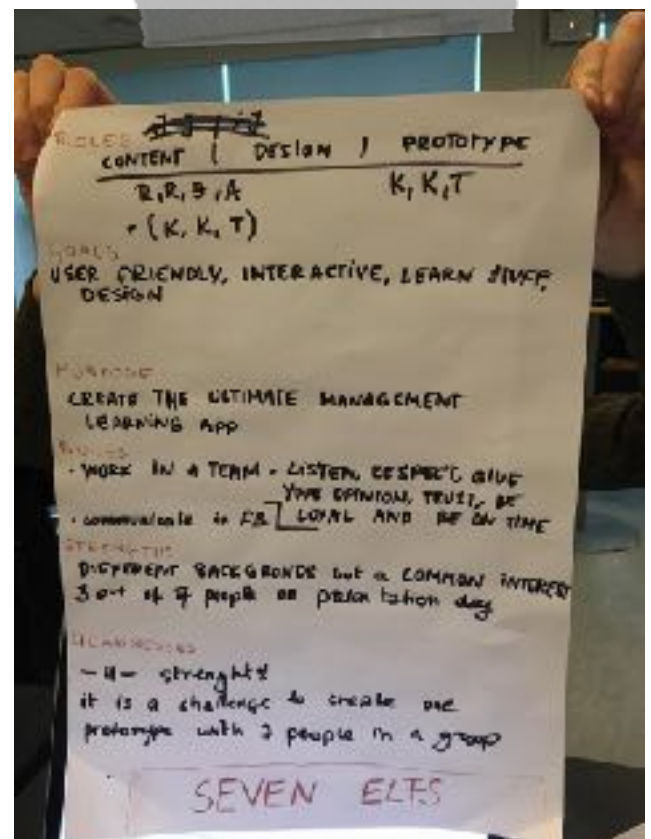 ROLES
CONTENT | DESIGN | PROTOTYPE
R, R, S, A K, K, T
+ (K, K, T)
GOALS
USER FRIENDLY, INTERACTIVE, LEARN STUFF,
DESIGN
PURPOSE
CREATE THE ULTIMATE MANAGEMENT
LEARNING APP
RULES
· WORK IN A TEAM - LISTEN, RESPECT, GIVE
OPINION, TRUST, BE
· communicate in FB LOYAL AND BE ON TIME
STRENGTHS
DIFFERENT BACKGRONDS but a COMMON INTEREST
3 out of 7 people on presentation day
WEAKNESSES
-11- strenghts
it is a challenge to create one
prototype with 7 people in a group
SEVEN ELFS